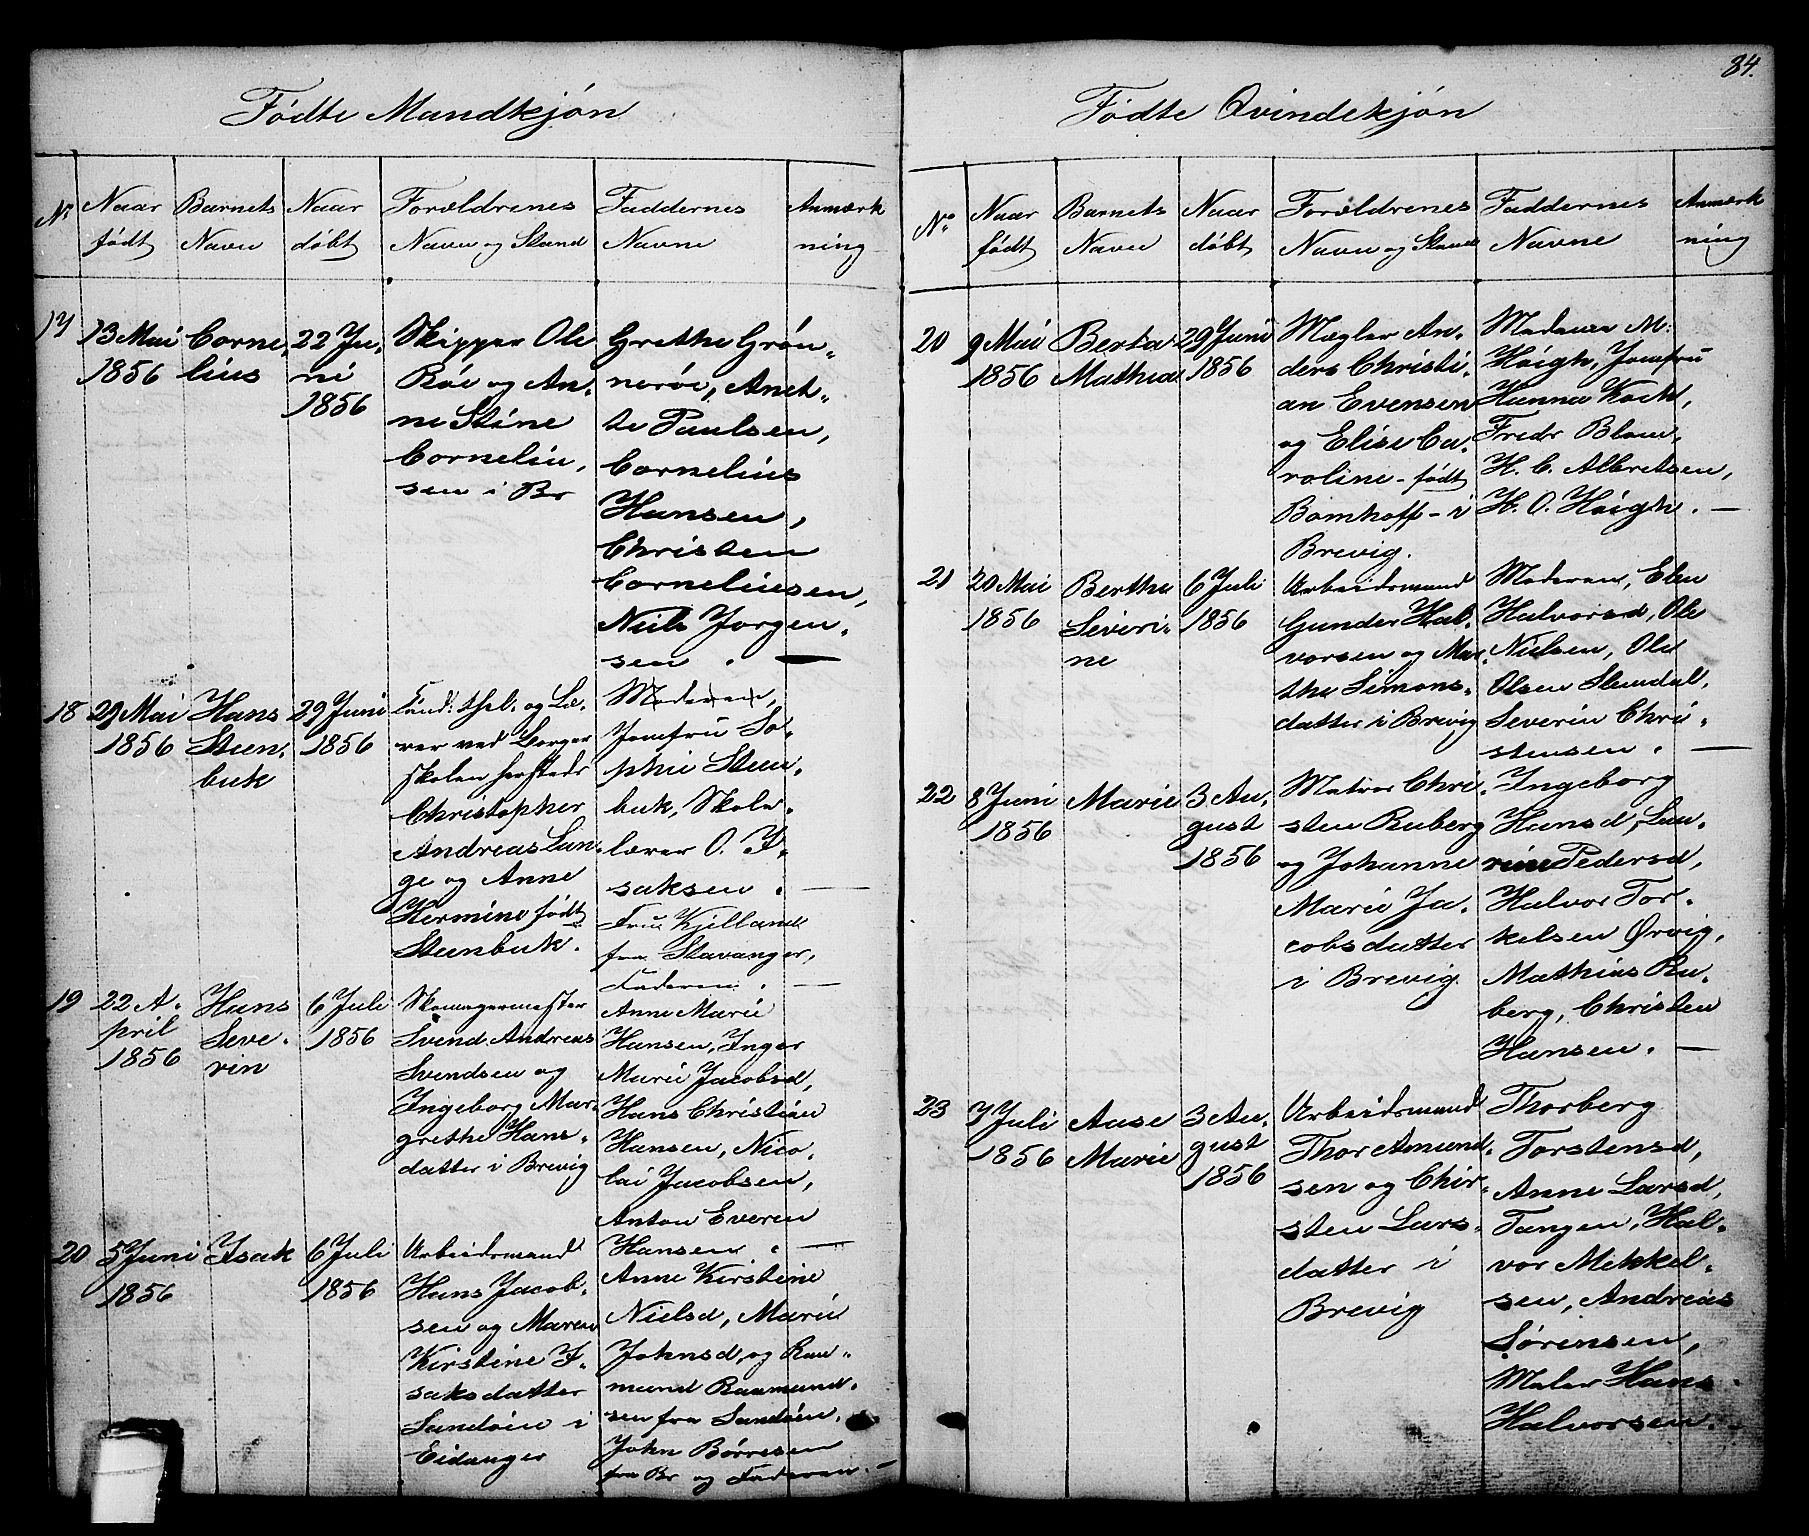 84.
Fødte Mandkjøn
Nr
Naar født
Barnets Navn
Naar døbt
Forældrenes Navn og Stand
Faddernes Navne
Anmærkning
17
13 Mai
1856
Corne,
lius
22 Ju,
ni
1856
Skipper Ole
Röe og An,
ne Stine
Corneliu,
sen i Br
Grethe Grön,
neröe, Anet,
te Paulsen,
Cornelius
Hansen,
Christen
Corneliusen,
Niels Jorgen,
sen . —
18
29 Mai
1856
Hans
Steen,
buk
29 Juni
1856
Cand: thel. og Læ,
rer ved Borger
skolen hersteds
Christopher
Andreas Lan,
ge og Anne
Hermine født
Steenbuk.
Moderen,
Jomfru So,
phie Steen,
buk, Skole,
lærer O. I,
saksen . —
Fru Kjelland
fra Stavanger,
Faderen . —
19
22 A,
pril
1856
Hans
Seve,
rin
6 Juli
1856
Skomagermester
Svend Andreas
Svendsen og
Ingeborg Mar,
grethe Hans,
datter i Brevig
Anne Marie
Hansen, Inger
Marie Jacobsd,
Hans Christian
Hansen, Nico,
lai Jacobsen,
Anton Everen
Hansen . —
20
5 Juni
1856
Isak
6 Juli
1856
Arbeidsmand
Hans Jacob,
sen og Maren
Kirstine I,
saksdatter
Sandöen i
Eidanger
Anne Kirstine
Nielsd, Marie
Johnsd, og Raa,
mund Raamund,
sen fra Sandöen,
John Börresen
fra Br og Faderen. —
Fødte Qvindekjøn
No
Naar født
Barnets Navn
Naar døbt
Forældrenes Navn og Stand
Faddernes Navne
Anmærkning
20
9 Mai
1856
Berta
Mathea
29 Juni
1856
Mægler An,
ders Christi,
an Evensen
og Elise Ca,
roline - født
Bomhoff - i
Brevig.
Madame M:
Höigh, Jomfru
Hanna Koch,
Fredr Blom,
H. C. Albretsen,
H. O. Höigh. —
21
20 Mai
1856
Berthe
Severi,
ne
6 Juli
1856
Arbeidsmand
Gunder Hal,
vorsen og Mar,
the Simons,
datter i Brevig
Moderen, Elen
Halvorsd, Ole
Nielsen, Ole
Olsen Stemdal,
Severin Chri,
stensen . —
22
8 Juni
1856
Marie
3 Au,
gust
1856
Matros Chri,
sten Ruberg
og Johanne
Marie Ja,
cobsdatter
i Brevig
Ingeborg
Hansd, Lau,
rine Pedersd,
Halvor Tor,
kelsen Ørvig,
Mathias Ru,
berg, Christen
Hansen. —
23
7 Juli
1856
Aase
Marie
3 Au,
gust
1856
Arbeidsmand
Thor Amund,
sen og Chir,
sten Lars,
datter i
Brevig
Thorberg
Torstensd,
Anne Larsd,
Tangen, Hal,
vor Mikkel,
sen, Andreas
Sörensen,
Maler Hans
Halvorsen.